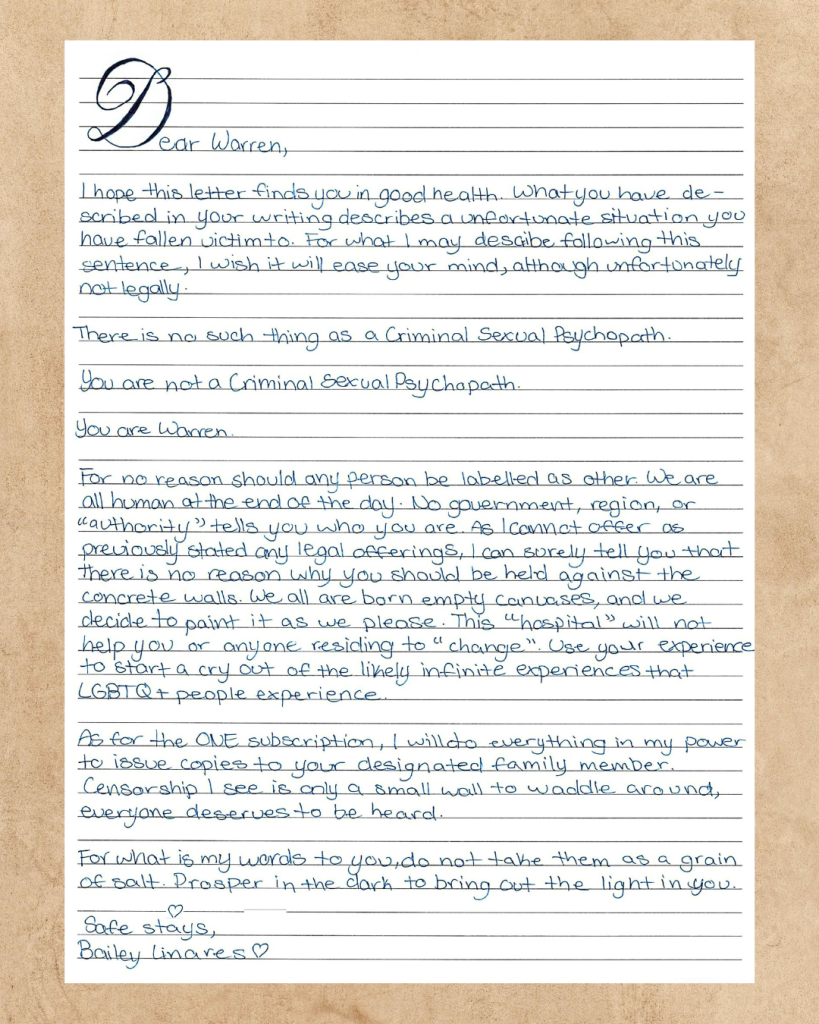 Dear Warren,
I hope this letter finds you in good health. What you have de-
scribed in your writing describes a unfortunate situation you
have fallen victim to. For what I may descibe following this
sentence, I wish it will ease your mind, although unfortunately
not legally.
There is no such thing as a Criminal Sexual Psychopath.
You are not a Criminal Sexual Psychopath.
You are Warren.
For no reason should any person be labelled as other. We are
all human at the end of the day. No government, region, or
"authority" tells you who you are. As I cannot offer as
previously stated any legal offerings, I can surely tell you that
there is no reason why you should be held against the
concrete walls. We all are born empty canvases, and we
decide to paint it as we please. This "hospital" will not
help you or anyone residing to "change". Use your experience
to start a cry out of the likely infinite experiences that
LGBTQ+ people experience.
As for the ONE subscription, I will do everything in my power
to issue copies to your designated family member.
Censorship I see is only a small wall to waddle around,
everyone deserves to be heard.
For what is my words to you, do not take them as a grain
of salt. Prosper in the dark to bring out the light in you.
Safe stays,
Bailey Linares ♡